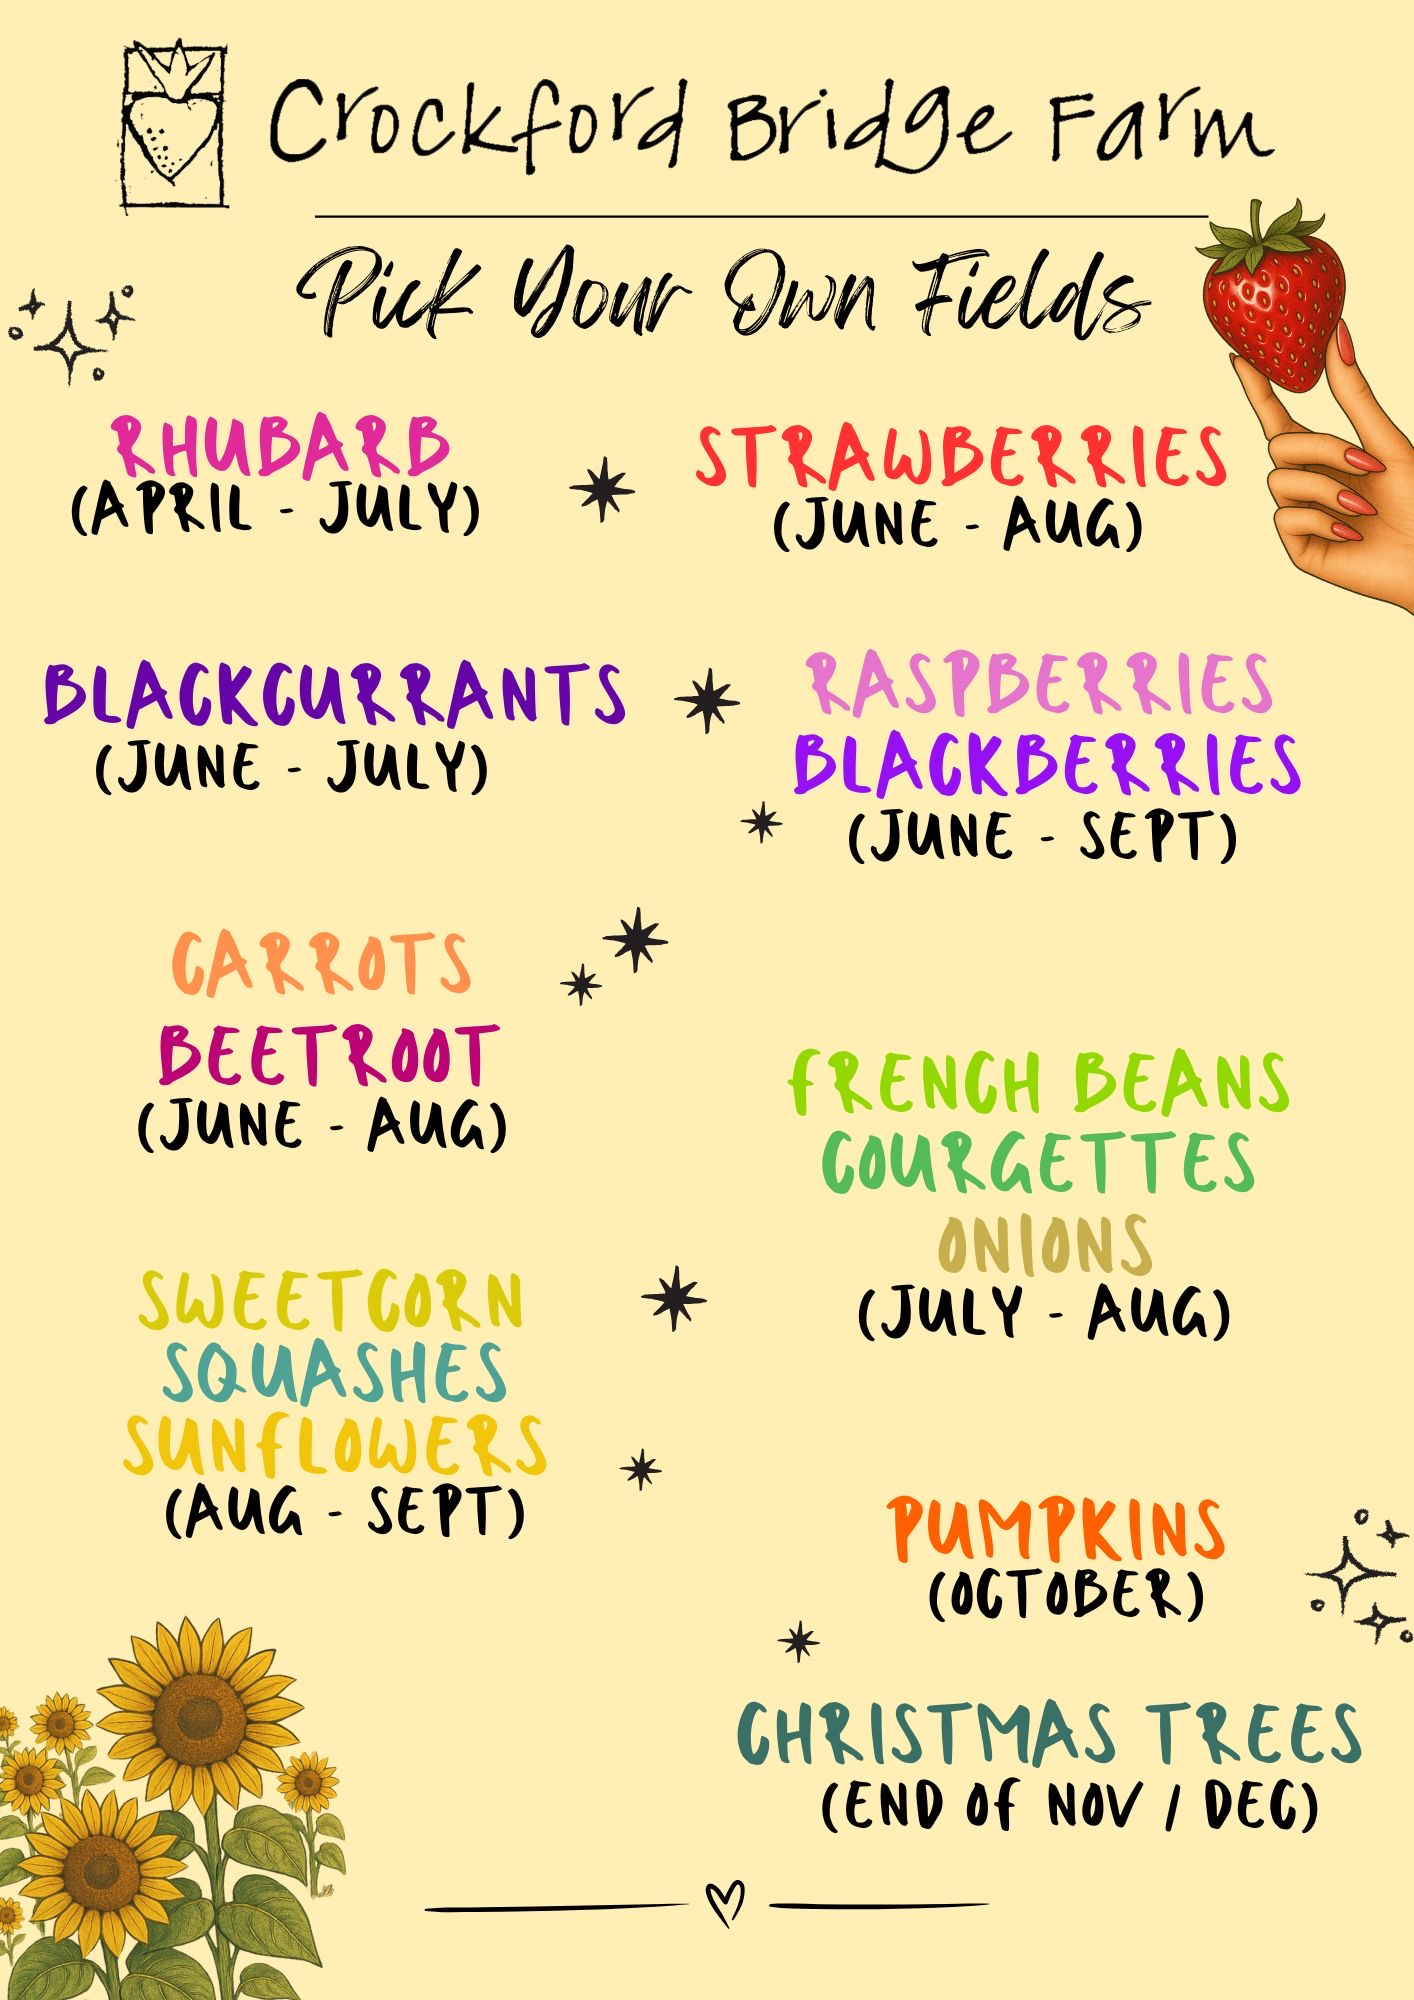 Crockford Bridge Farm
Pick Your Own Fields
RHUBARB
(APRIL - JULY)
STRAWBERRIES
(JUNE - AUG)
BLACKCURRANTS
(JUNE - JULY)
RASPBERRIES
BLACKBERRIES
(JUNE - SEPT)
CARROTS
BEETROOT
(JUNE - AUG)
FRENCH BEANS
COURGETTES
ONIONS
(JULY - AUG)
SWEETCORN
SQUASHES
SUNFLOWERS
(AUG - SEPT)
PUMPKINS
(OCTOBER)
CHRISTMAS TREES
(END OF NOV / DEC)